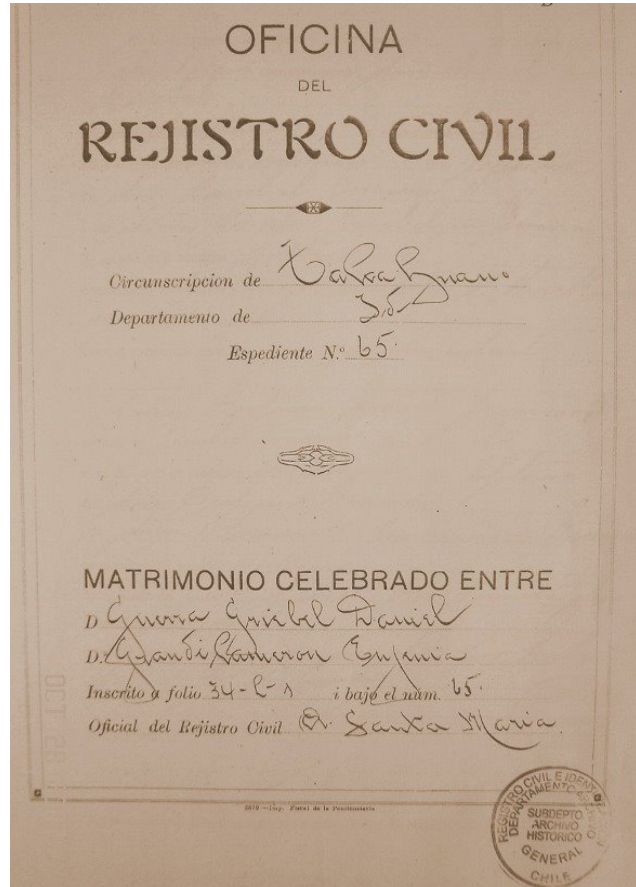 OFICINA
DEL
REJISTRO CIVIL
Circunscripcion de Talcahuano
Departamento de Id
Espediente N.º 65.
MATRIMONIO CELEBRADO ENTRE
D Guerra Griebel Daniel
D. Grandi Cameron Eujenia
Inscrito a folio 34 i bajo el num. 65.
Oficial del Rejistro Civil A. Santa Maria
Imp. Fiscal de la Penitenciaría
REGISTRO CIVIL E IDENTIFICACION
DEPARTAMENTO ARCHIVO
SUBDEPTO
ARCHIVO
HISTORICO
GENERAL
CHILE